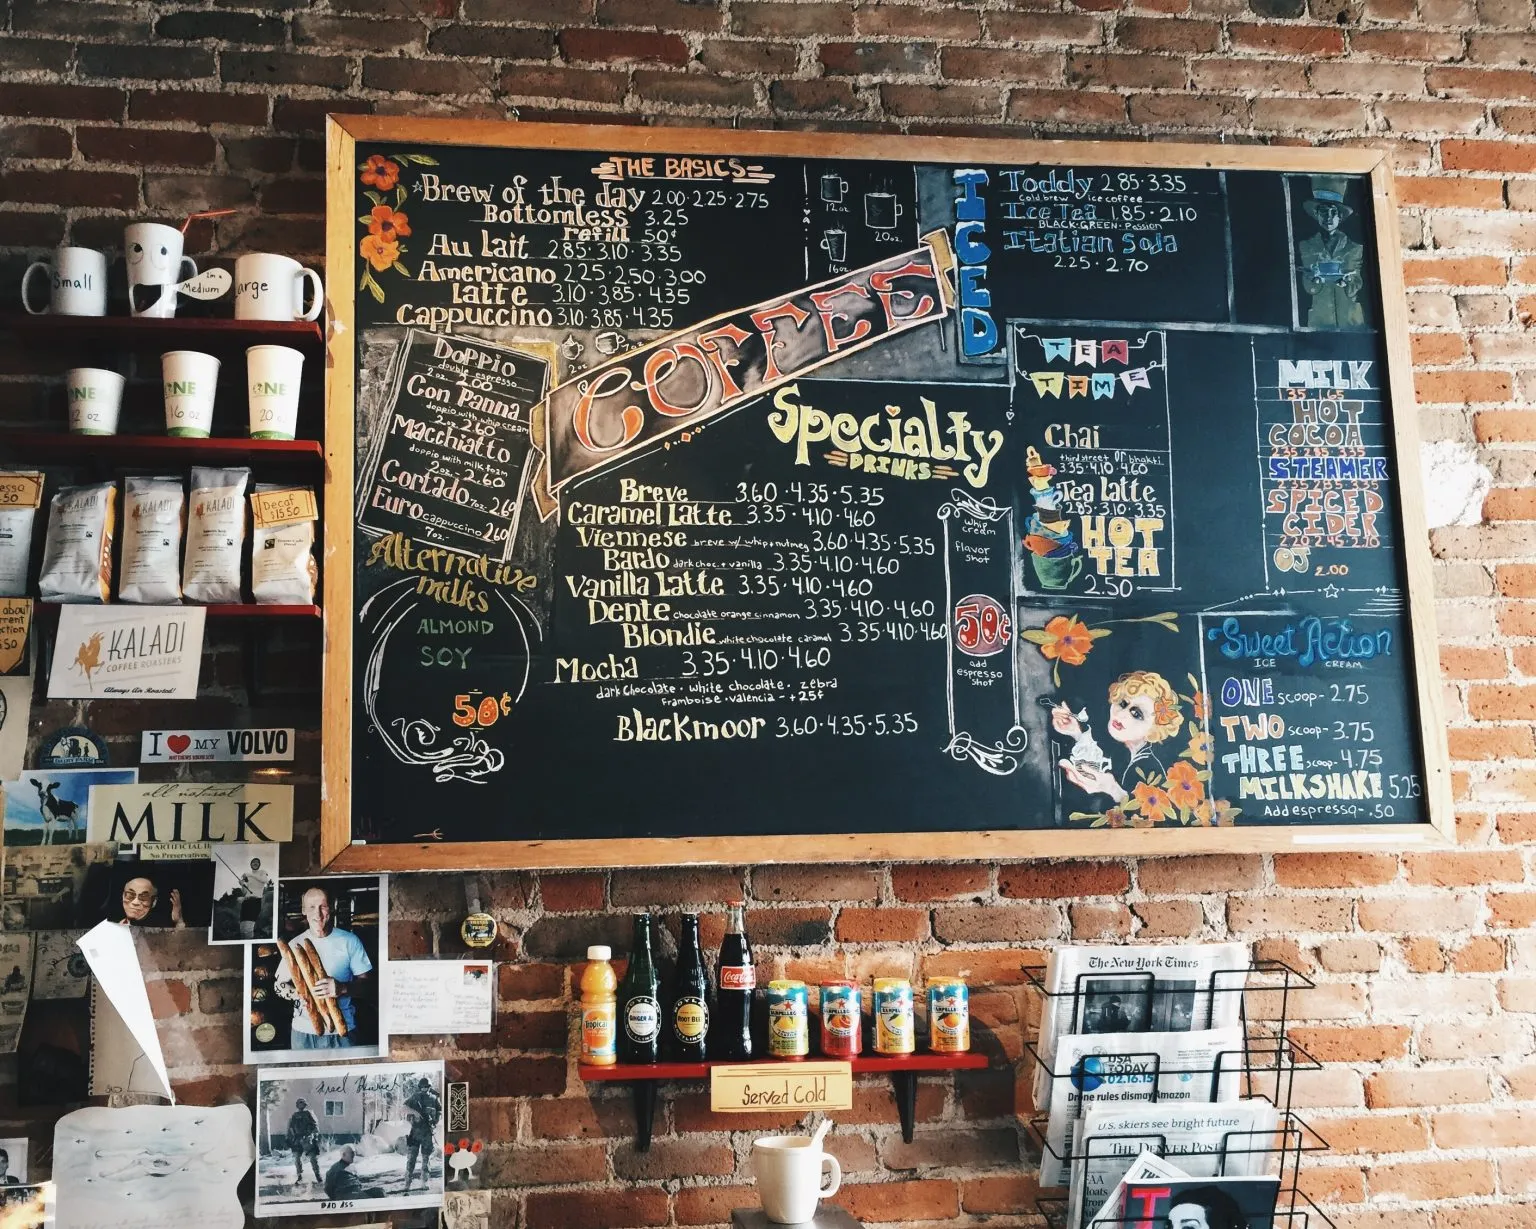 THE BASICS
Brew of the day 2.00·2.25·2.75
Bottomless 3.25
refill 50¢
Au Lait 2.85·3.10·3.35
Americano 2.25·2.50·3.00
Latte 3.10·3.85·4.35
Cappuccino 3.10·3.85·4.35
12oz
20oz.
16oz
COFFEE
DOPPIO
double espresso
2oz. 2.00
Con Panna
doppio with whip cream
2oz. 2.60
Macchiatto
doppio with milk foam
2oz. 2.60
Cortado 7oz. 2.60
Euro cappuccino 2.60
7oz.
Alternative
milks
ALMOND
SOY
50¢
Specialty
DRINKS
Breve 3.60·4.35·5.35
Caramel Latte 3.35·4.10·4.60
Viennese breve w/ whip+nutmeg 3.60·4.35·5.35
Bardo dark choc.+vanilla 3.35·4.10·4.60
Vanilla Latte 3.35·4.10·4.60
Dente chocolate orange cinnamon 3.35·4.10·4.60
Blondie white chocolate caramel 3.35·4.10·4.60
Mocha 3.35·4.10·4.60
dark chocolate · white chocolate · zebra
framboise · valencia - +25¢
Blackmoor 3.60·4.35·5.35
whip
cream
flavor
shot
50¢
add
espresso
shot
ICED
Toddy 2.85·3.35
cold brew ice coffee
Ice Tea 1.85·2.10
BLACK·GREEN·Passion
Italian Soda
2.25·2.70
TEA
TIME
Chai
third street or bhakti
3.35·4.10·4.60
Tea latte
2.85·3.10·3.35
HOT
TEA
2.50
MILK
1.35 1.65
HOT
COCOA
2.35 2.85 3.35
STEAMER
2.35 2.85 3.35
SPICED
CIDER
OJ 2.00
Sweet Action
ICE CREAM
ONE scoop- 2.75
TWO scoop- 3.75
THREE scoop- 4.75
MILKSHAKE 5.25
Add espresso- .50
Small
I'm a
Medium
Large
ONE
12 oz
ONE
16 oz
ONE
20 oz
KALADI
KALADI
KALADI
Decaf
$15.50
KALADI
COFFEE ROASTERS
Always Air Roasted!
I MY VOLVO
all natural
MILK
No ARTIFICIAL
No Preservatives,
BAD ASS
Tropicana
GINGER ALE
ROOT BEER
Coca-Cola
SANPELLEGRINO
SANPELLEGRINO
SANPELLEGRINO
SANPELLEGRINO
Served Cold
The New York Times
USA
TODAY
02.16.15
Drone rules dismay Amazon
U.S. skiers see bright future
THE DENVER POST